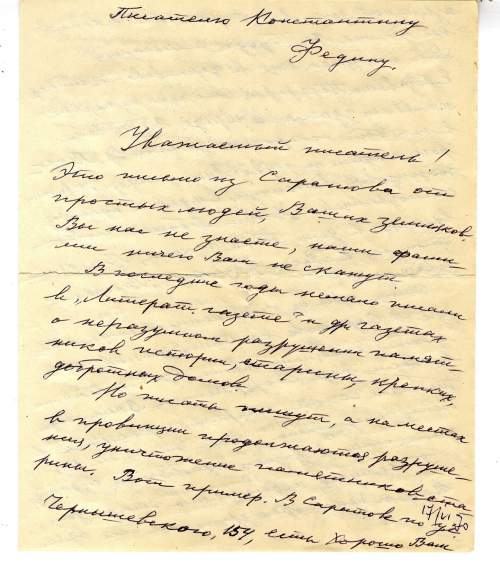 Писателю Константину
Федину.
Уважаемый писатель!
Это письмо из Саратова от
простых людей, Ваших земляков.
Вы нас не знаете, наши фами-
лии ничего Вам не скажут.
В последние годы немало писали
в „Литерат. газете" и др. газетах
о неразумном разрушении памят
ников истории, старины, крепких,
добротных домов.
Но писать пишут, а на местах
в провинции продолжаются разруше-
ния, уничтожение памятников ста
рины. Вот пример. В Саратове по ул.
Чернышевского, 154, есть хорошо Вам
17/VI 70